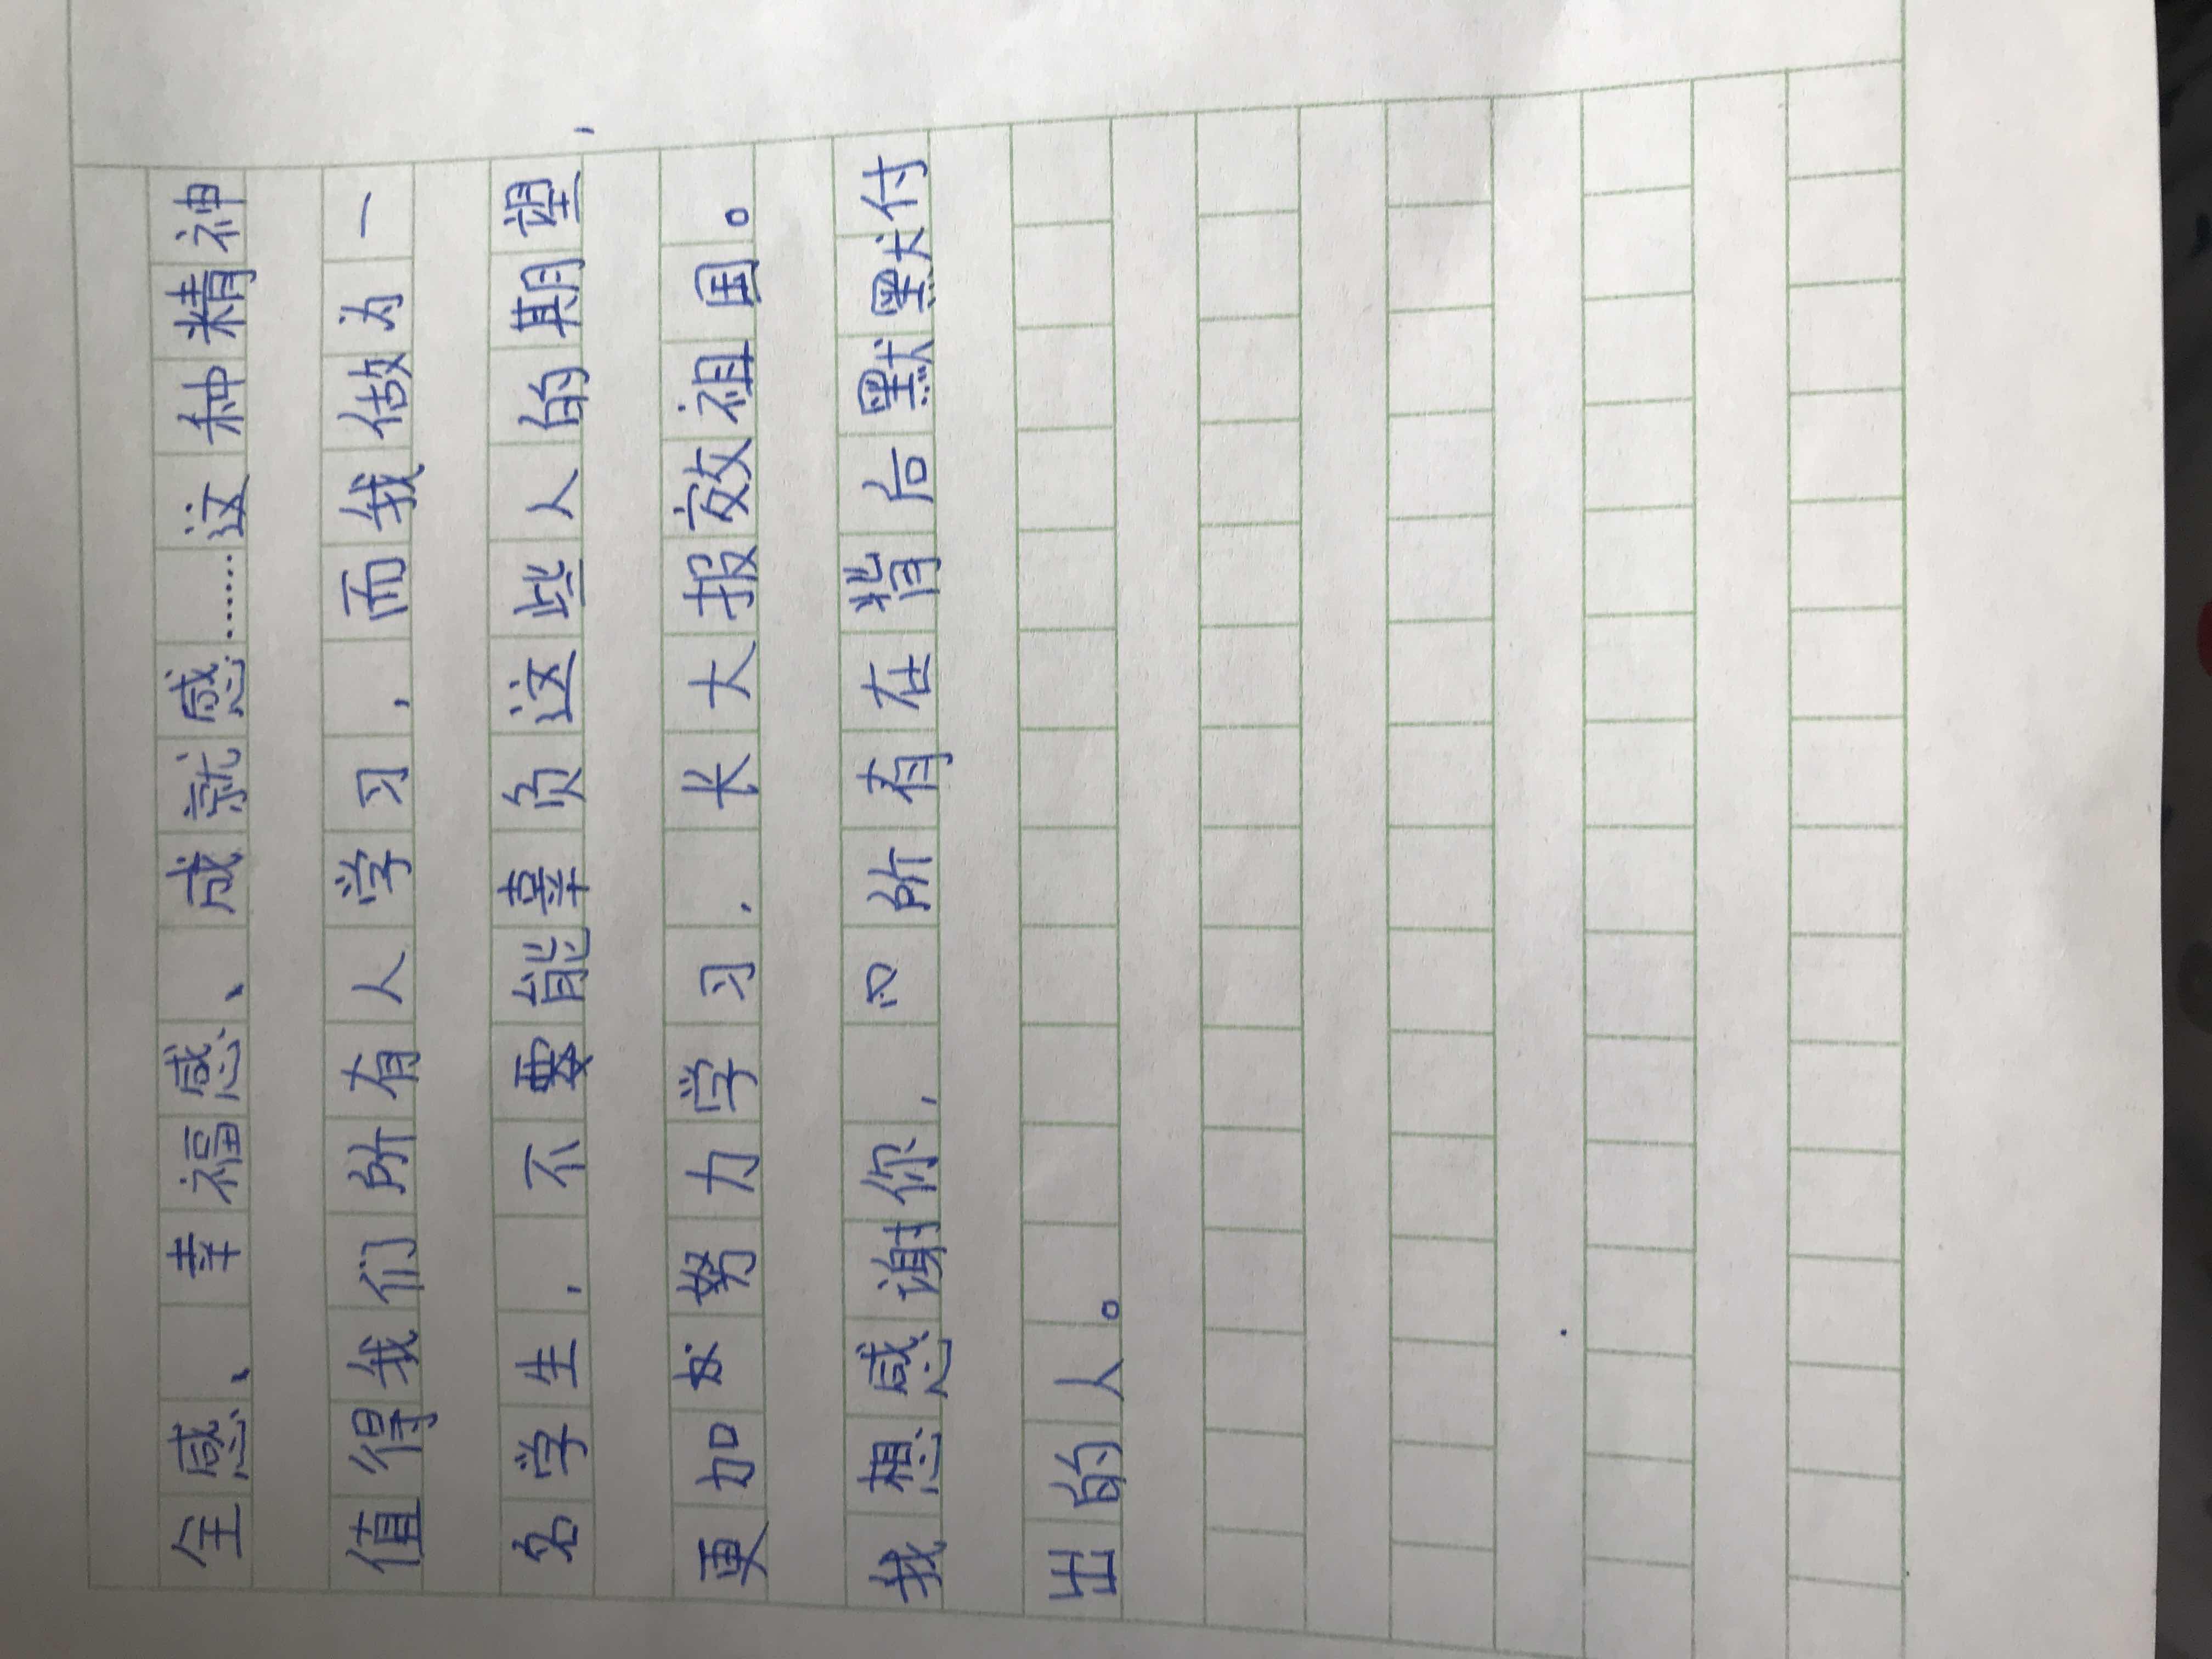 全感、幸福感、成就感……这种精神
值得我们所有人学习,而我做为一
名学生,不要能辜负这些人的期望,
更加发努力学习,长大报效祖国。
我想感谢你,和所有在背后默默付
出的人。